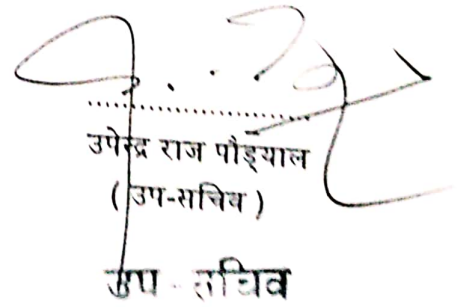 उपेन्द्र राज पौड्याल
( उप-सचिव )
उप - सचिव